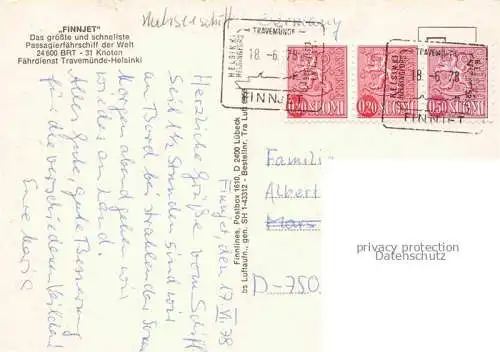 "FINNJET"
Das größte und schnellste
Passagierfährschiff der Welt
24 600 BRT - 31 Knoten
Fährdienst Travemünde-Helsinki
Germany
TRAVEMÜNDE
HELSINKI
HELSINGFORS
18. -6. 78
FINNJET
0,20 SUOMI
0,20 SUOMI
0,50 SUOMI
TRAVEMÜNDE
HELSINKI
HELSINGFORS
18. -6. 78
FINNJET
Finnjet, den 17. VI. 78
Herzliche Grüße vom Schiff
Seit 16 Stunden sind wir
an Bord bei strahlender Sonne
Morgen abend gehen wir
wieder an Land.
Alles Gute, gute Besserung
für die verschiedenen
Finnlines, Postbox 1610, D 2400 Lübeck
bs Luftaufn., gen. SH 1-43312 - Bestellnr. Tra Luft
Familie
Albert
Mars
D-750
privacy protection
Datenschutz